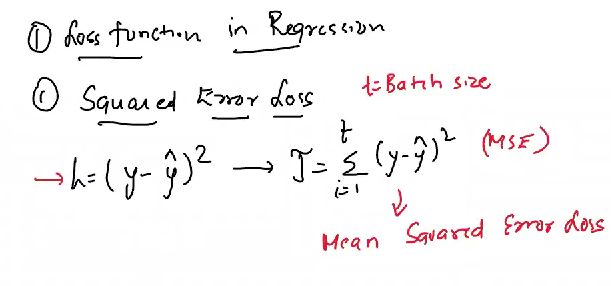 ① Loss function in Regression
① Squared Error Loss t = Batch size
→ h = (y - ŷ)² → J = t Σ i=1 (y - ŷ)² (MSE)
Mean Squared Error Loss